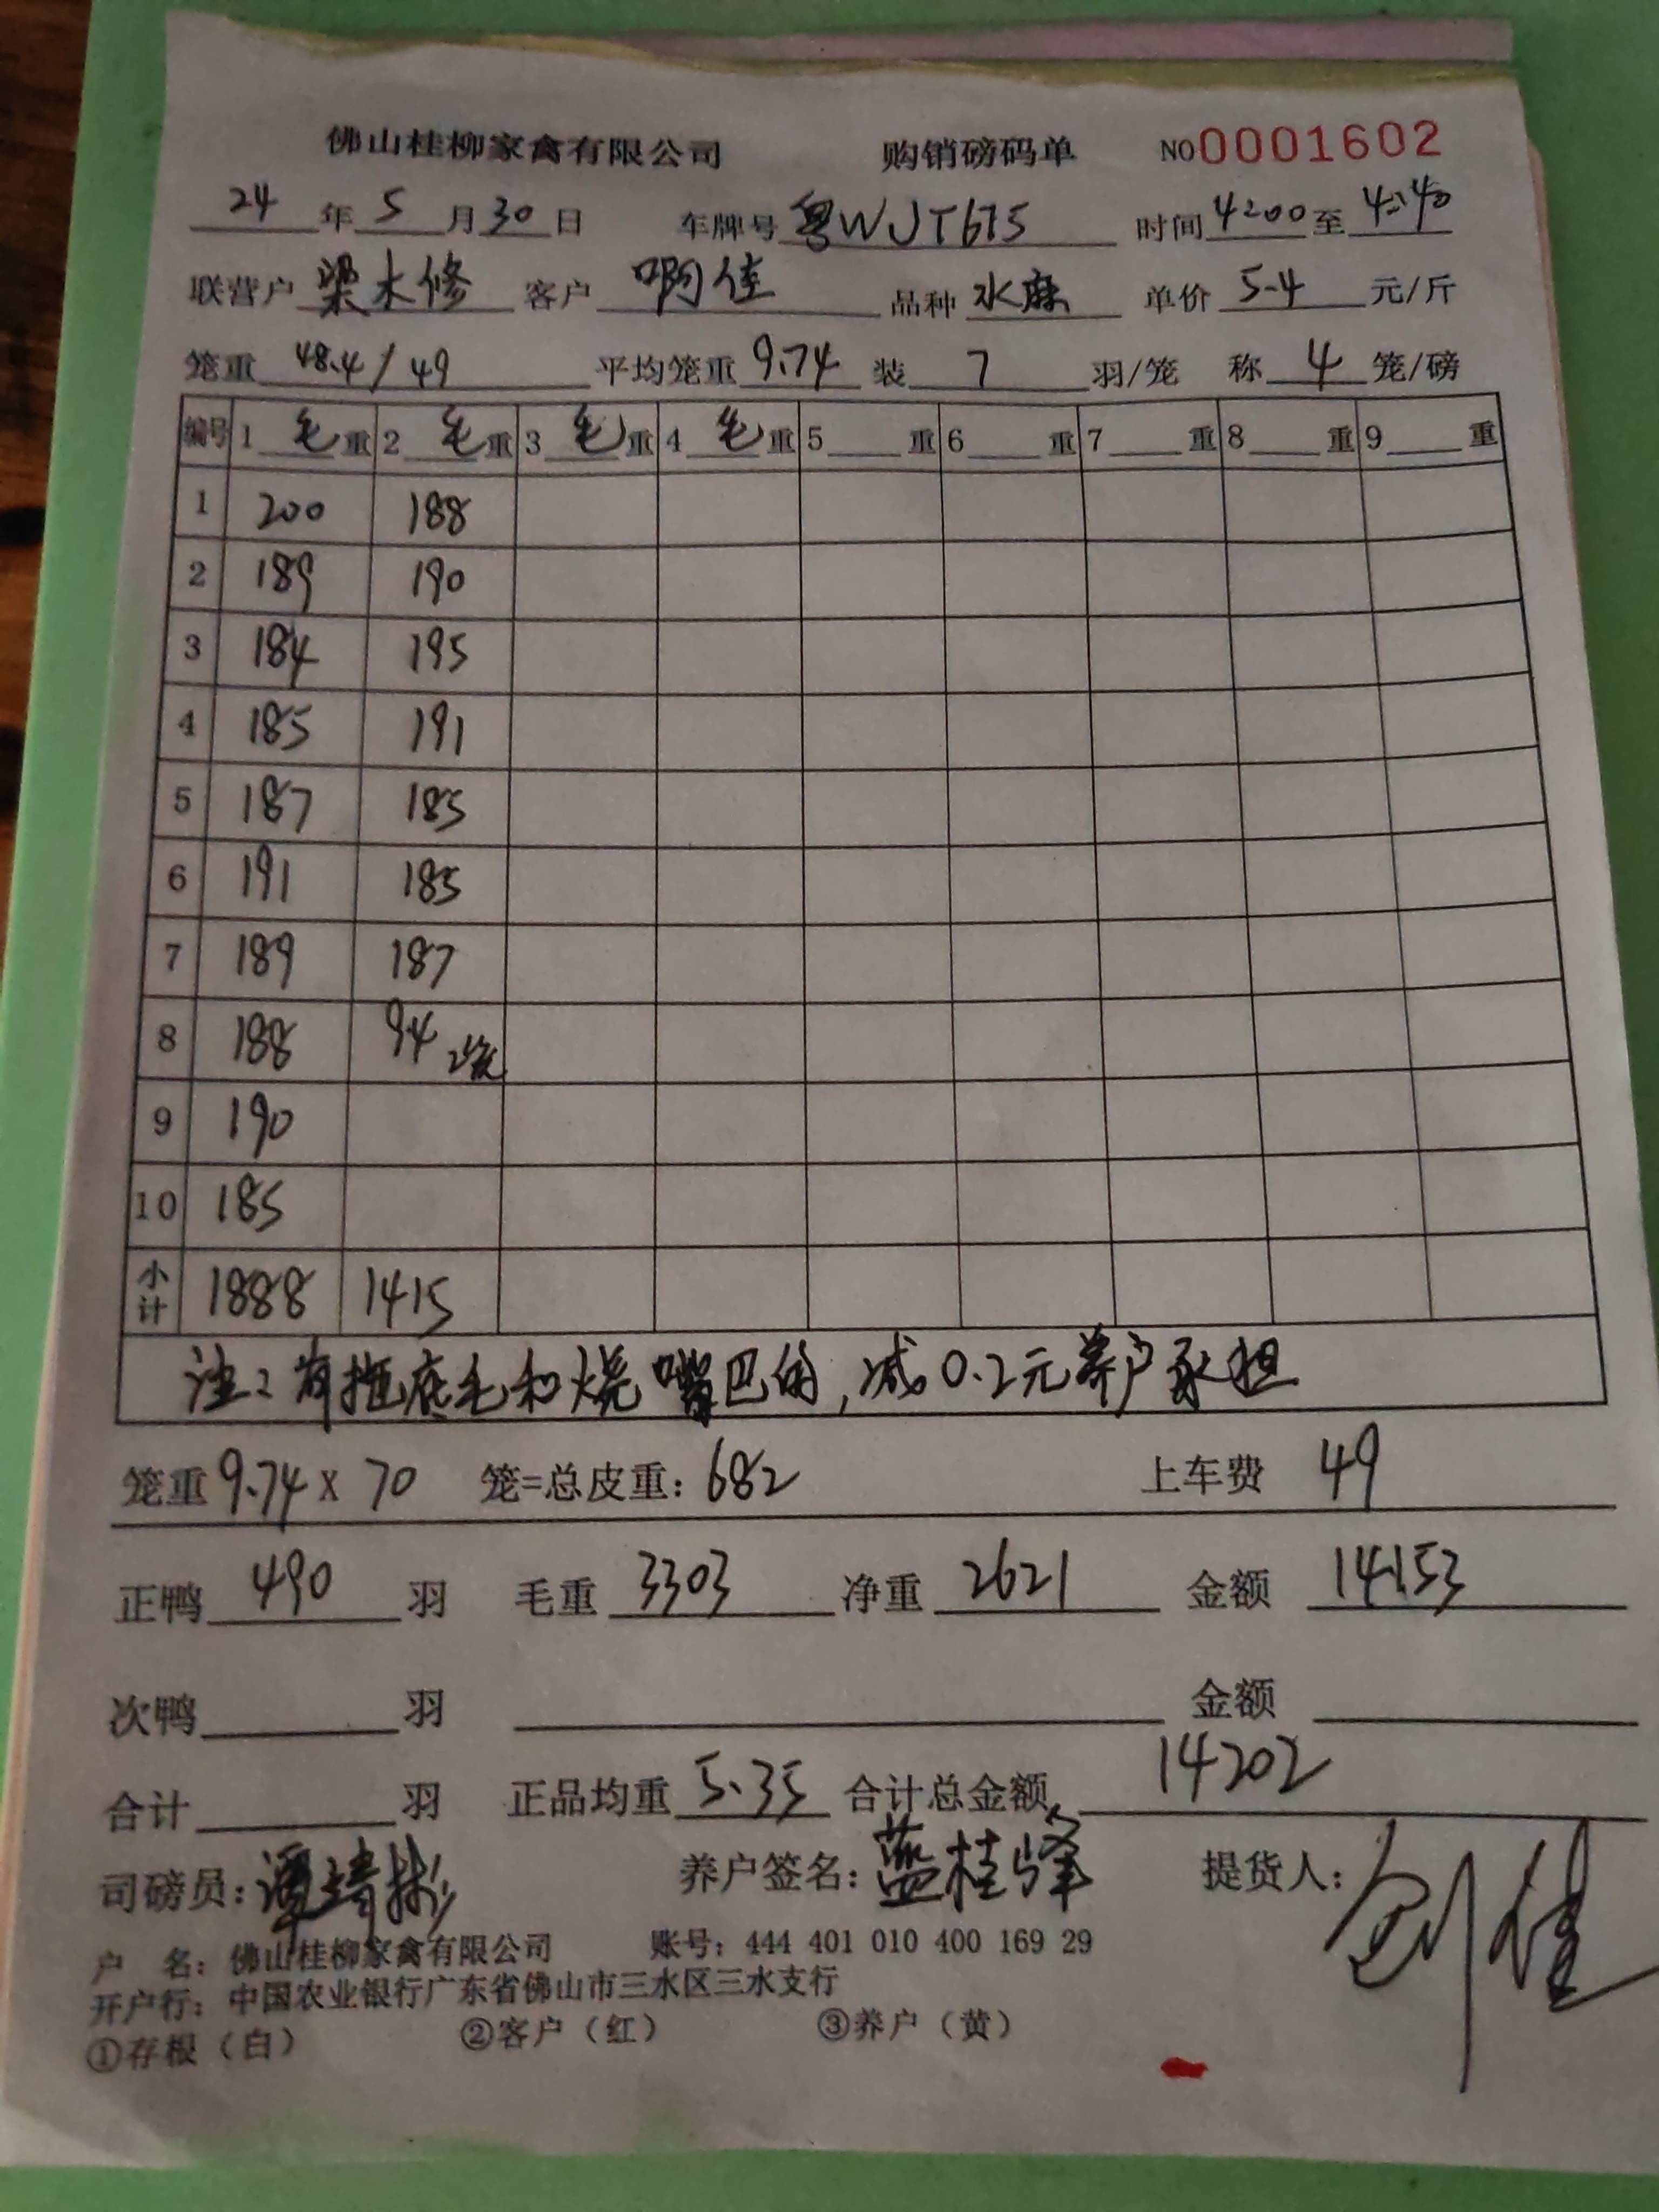 佛山桂柳家禽有限公司 购销磅码单 NO0001602
24年5月30日 车牌号 粤WJT675 时间 4:00 至 4:40
联营户 梁木修 客户 啊佳 品种 水麻 单价 5.4 元/斤
笼重 48.4/49 平均笼重 9.74 装 7 羽/笼 称 4 笼/磅
编号 1 毛重 2 毛重 3 毛重 4 毛重 5 重 6 重 7 重 8 重 9 重
1 200 188
2 189 190
3 184 195
4 185 191
5 187 185
6 191 185
7 189 187
8 188 94 2笼
9 190
10 185
小计 1888 1415
注:有拖底毛和烧嘴巴的,减0.2元养户承担
笼重 9.74 x 70 笼=总皮重: 682 上车费 49
正鸭 490 羽 毛重 3303 净重 2621 金额 14153
次鸭 羽 金额
合计 羽 正品均重 5.35 合计总金额 14202
司磅员: 谭靖彬 养户签名: 蓝桂锋 提货人:
户 名: 佛山桂柳家禽有限公司 账号: 444 401 010 400 169 29
开户行: 中国农业银行广东省佛山市三水区三水支行
①存根(白) ②客户(红) ③养户(黄)